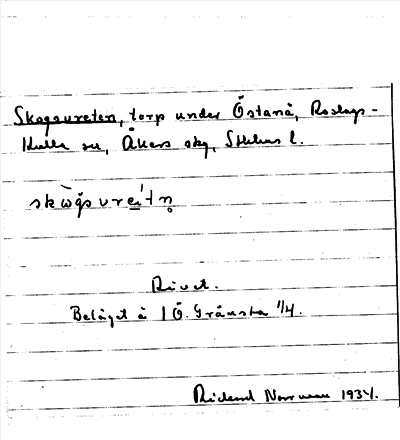 Skogsvreten, torp under Östanå, Roslags-
Kulla sn, Åkers skg, Sthlms l.
skògsvreí̱tn̥
Rivet.
Beläget å 1 Ö. Gränsta 1/4.
Rickard Norrman 1934.